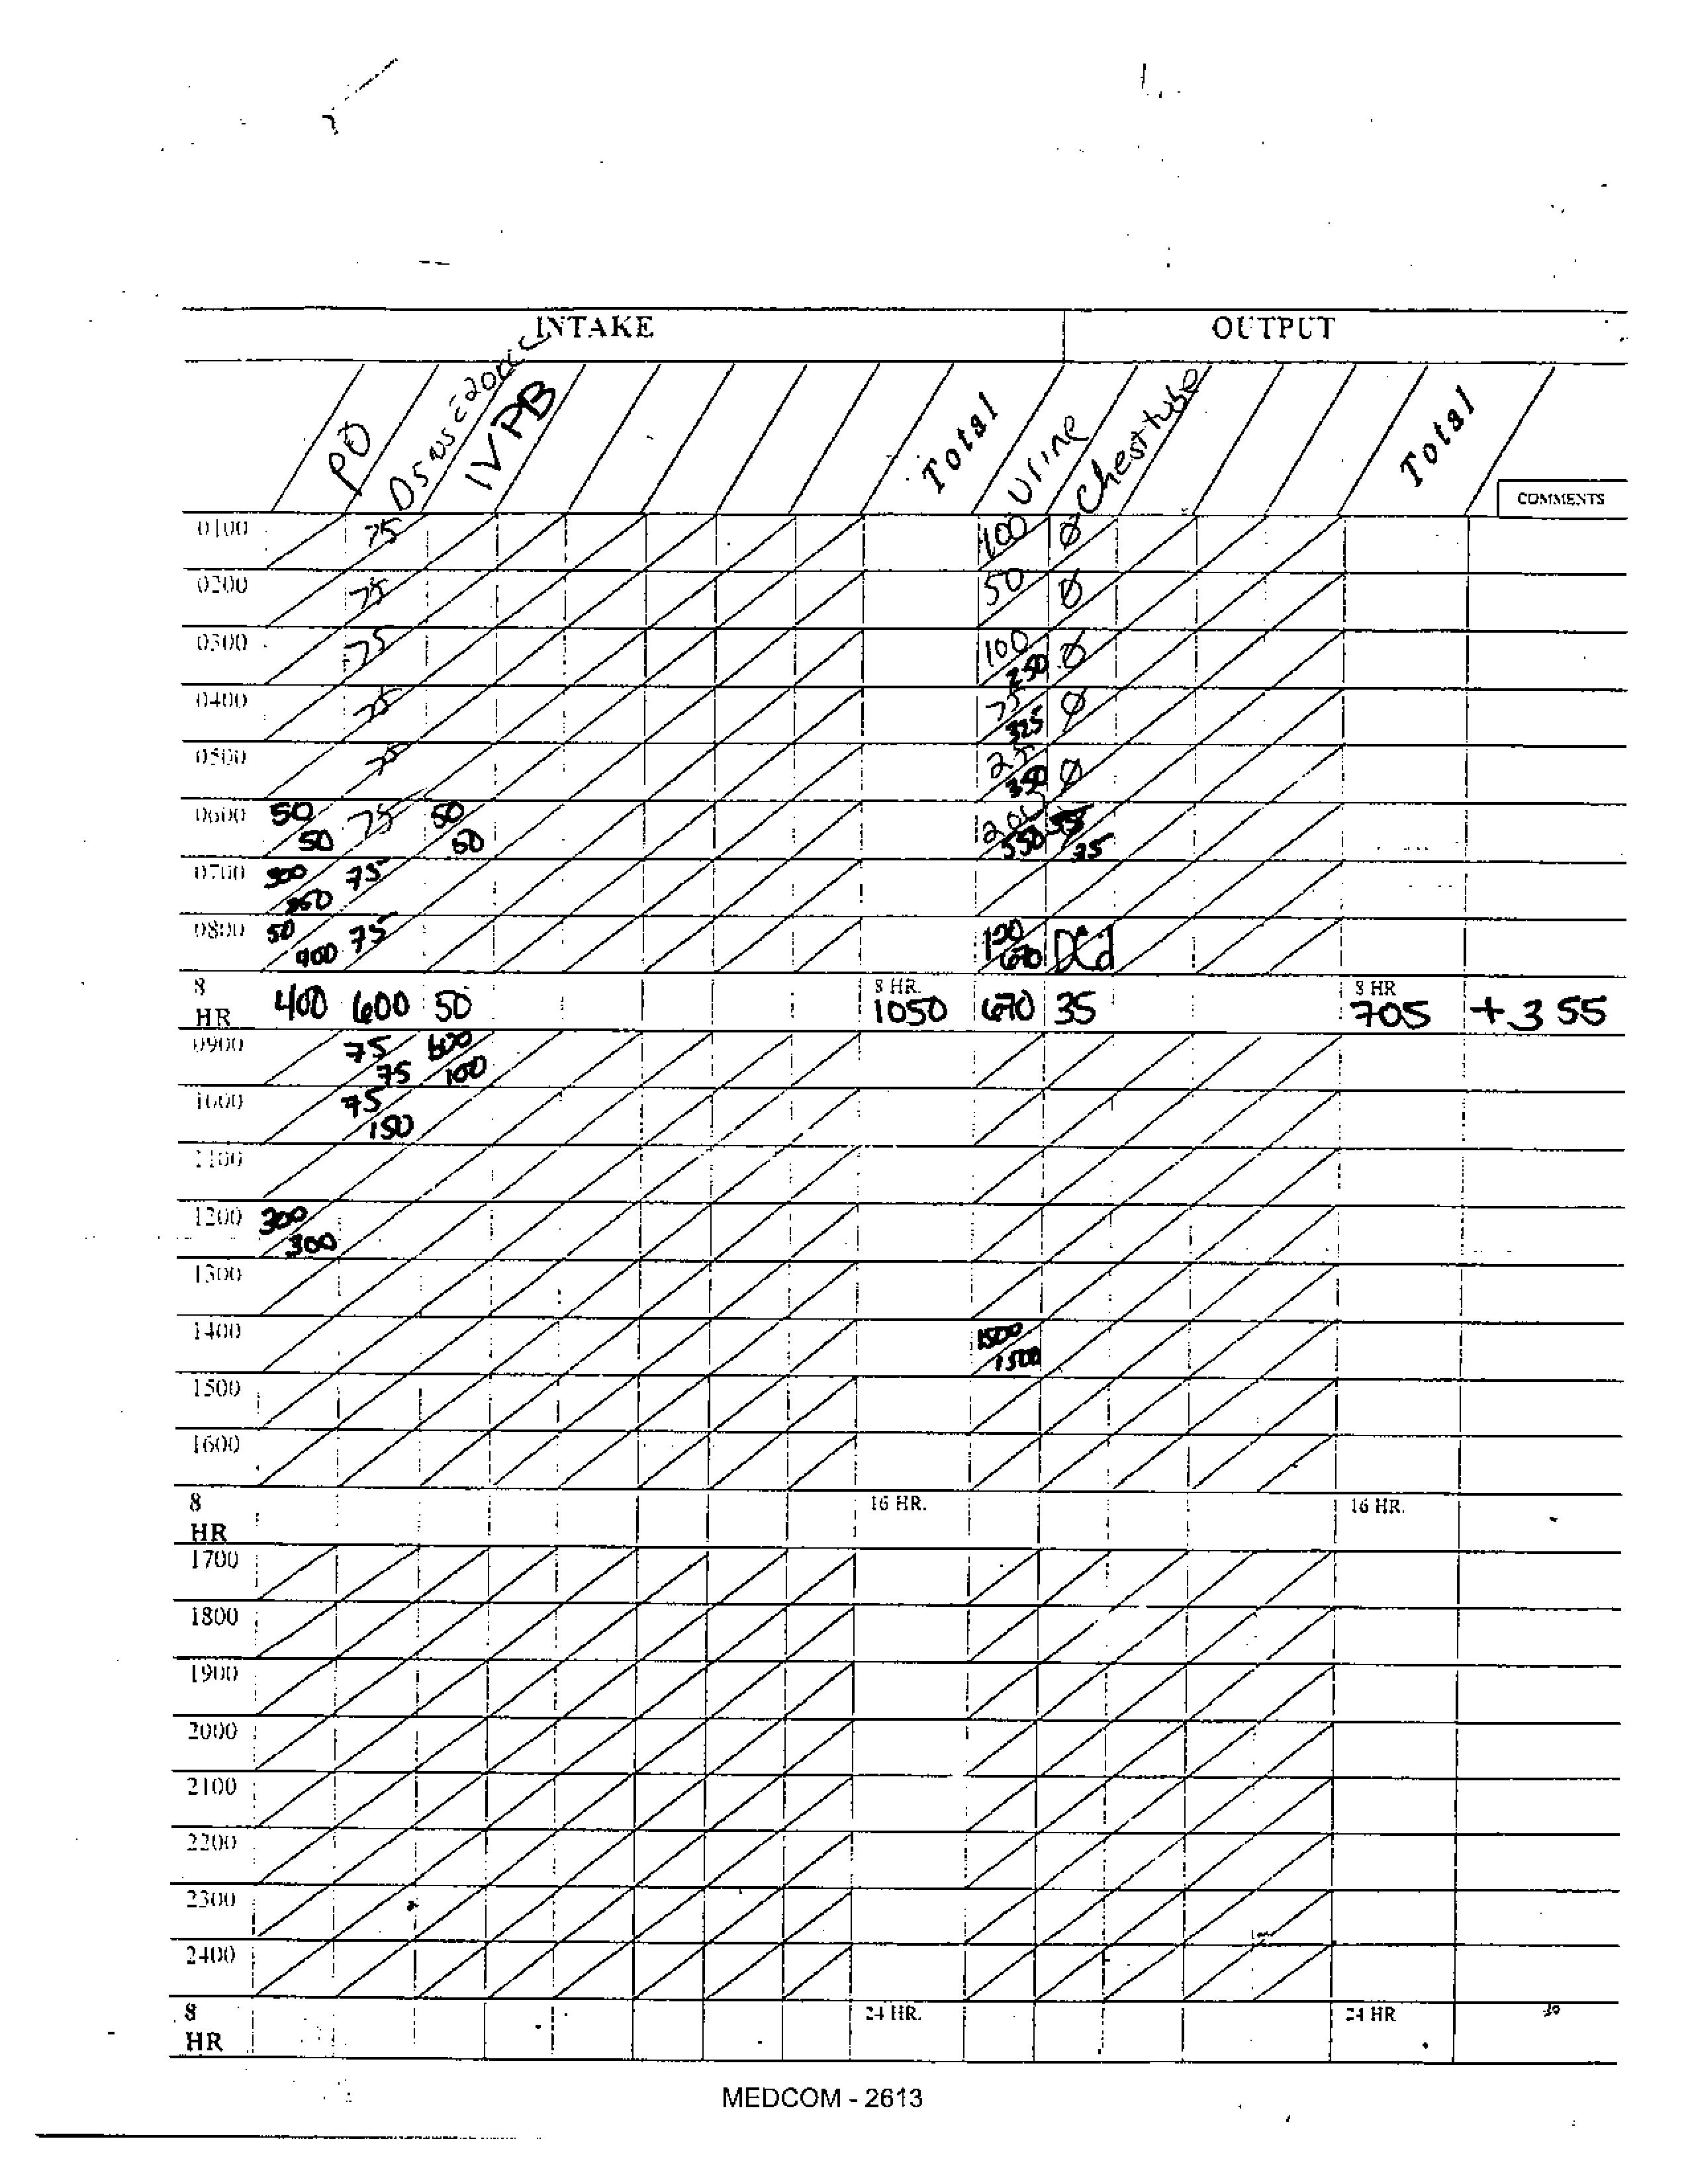 INTAKE OUTPUT
PO IVPB Total Urine Chest tube Total
COMMENTS
0100 75 100 Ø
0200 75 50 Ø
0300 75 100 250 Ø
0400 75 75 325 Ø
0500 75 25 350 Ø
0600 50 50 75 50 50 200 550 35 35
0700 300 350 75
0800 50 400 75 120 670 DCd
8 HR. 8 HR
8 HR 400 600 50 1050 670 35 705 +355
0900 75 75 100
1000 75 150
1100
1200 300 300
1300
1400 1500 1500
1500
1600
8 HR 16 HR. 16 HR.
1700
1800
1900
2000
2100
2200
2300
2400
8 HR 24 HR. 24 HR
MEDCOM - 2613